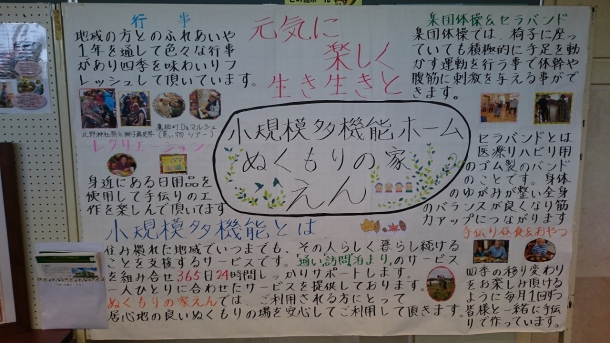 行事
地域の方とのふれあいや
1年を通して色々な行事
があり四季を味わいリフ
レッシュして頂いています。
元気に
楽しく
生き生きと
集団体操&セラバンド
集団体操では、椅子に座っ
ていても積極的に手足を動
かす運動を行う事で体幹や
腹筋に刺激を与える事がで
きます。
レクリエーション
身近にある日用品を
使用して手伝りの工
作を楽しんで頂いてます
小規模多機能ホーム
ぬくもりの家
えん
セラバンドとは
医療リハビリ用
のゴム製のバンド
のことです。身体
のゆがみが整い全身
のバランスが良くなり筋
力アップにつながります
小規模多機能とは
住み慣れた地域でいつまでも、その人らしく暮らし続ける
ことを支援するサービスです。通い訪問泊まり、のサービス
を組み合せ365日24時間しっかりサポートします。
一人ひとりに合わせたサービスを提供しております。
ぬくもりの家えんでは、ご利用される方にとって
居心地の良いぬくもりの場を安心してご利用して頂きます。
手伝り昼食&おやつ
四季の移り変わり
をお楽しみ頂ける
ように毎月1回ずつ
皆様と一緒に手伝
りで作っています。